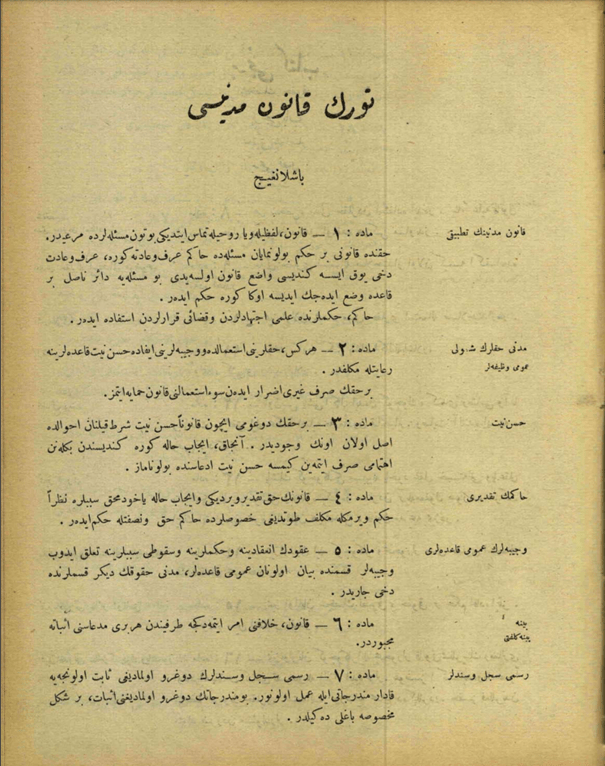 تورك قانون مدنیسی
باشلانغیج
قانون مدنینك تطبیقی
ماده : ١ — قانون، لفظیله ویا روحیله تماس ایتدیکی بوتون مسئله‌لرده مرعیدر.
حقنده قانونی بر حکم بولونمایان مسئله‌ده حاکم عرف وعادته کوره، عرف وعادت
دخی یوق ایسه کندیسی واضع قانون اولسه‌یدی بو مسئله‌یه دائر ناصل بر
قاعده وضع ایده‌جك ایدیسه اوکا کوره حکم ایدر.
حاکم، حکملرنده علمی اجتهادلردن وقضائی قرارلردن استفاده ایدر.
مدنی حقلرك شمولی
عمومی وظیفه‌لر
ماده : ٢ — هرکس، حقلرینی استعمالده ووجیبه‌لرینی ایفاده حسن نیت قاعده‌لرینه
رعایتله مکلفدر.
برحقك صرف غیری اضرار ایدن سوء استعمالنی قانون حمایه ایتمز.
حسن نیت
ماده : ٣ — برحقك دوغومی ایچون قانوناً حسن نیت شرط قیلنان احوالده
اصل اولان اونك وجودیدر. آنجاق، ایجاب حاله کوره کندیسندن بکله‌نن
اهتمامی صرف ایتمه‌ین کیمسه حسن نیت ادعاسنده بولوناماز.
حاکمك تقدیری
ماده : ٤ — قانونك حق تقدیر ویردیکی وایجاب حاله یاخود محق سببلره نظراً
حکم ویرمکله مکلف طوتدیغی خصوصلرده حاکم حق ونصفتله حکم ایدر.
وجیبه‌لرك عمومی قاعده‌لری
ماده : ٥ — عقودك انعقادینه وحکملرینه وسقوطی سببلرینه تعلق ایدوب
وجیبه‌لر قسمنده بیان اولونان عمومی قاعده‌لر، مدنی حقوقك دیکر قسملرنده
دخی جاریدر.
بینه
بینه کلفتی
ماده : ٦ — قانون، خلافنی امر ایتمه‌دکجه طرفیندن هربری مدعاسنی اثباته
مجبوردر.
رسمی سجل وسندلر
ماده : ٧ — رسمی سجل وسندلرك دوغرو اولمادیغی ثابت اولونجه‌یه
قادار مندرجاتی ایله عمل اولونور. بومندرجاتك دوغرو اولمادیغنی اثبات، بر شکل
مخصوصه باغلی ده‌کیلدر.